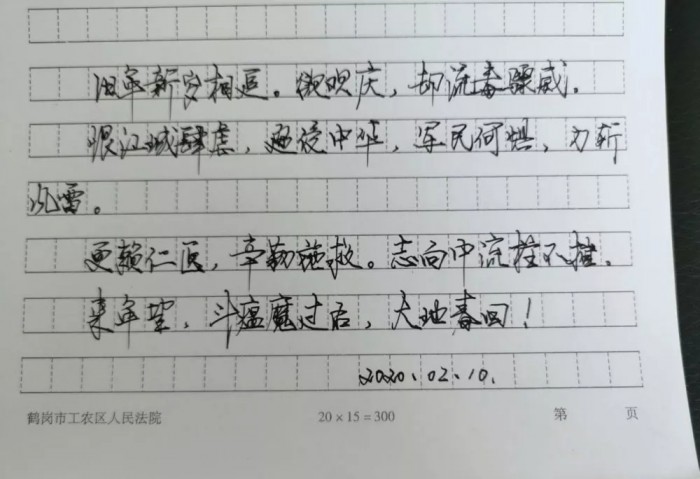 旧年新岁相追。俄欢庆,却流毒飘威。
恨江城肆虐,逦侵中华,军民何惧,力斩
风雪。
更赖仁医,辛勤施救。志向中流挫不摧。
来年望,斗瘟魔过后,大地春回!
2020.02.10.
鹤岗市工农区人民法院 20×15=300 第 页